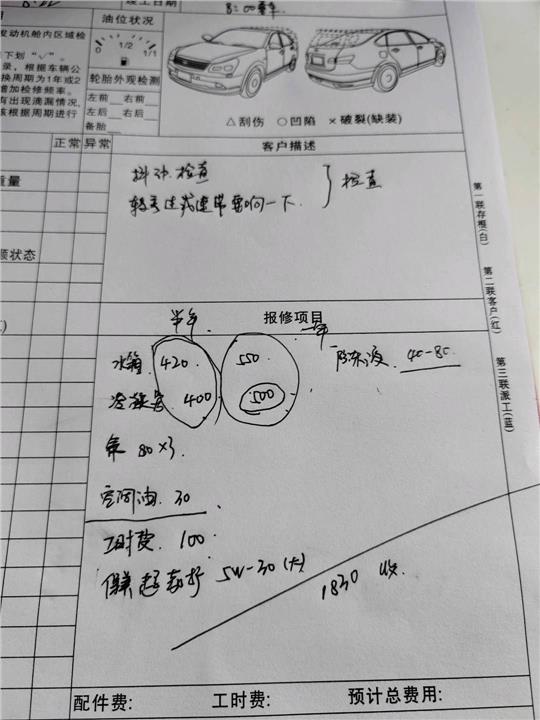 竣工日期 8:00
油位状况
发动机舱内区域检
下划“√”。
录，根据车辆公
换周期为1年或2
增加检修频率。
有出现滴漏情况，
核根据周期进行
0 1/2 1/1
轮胎外观检测
左前 右前
左后 右后
备胎
△刮伤 ○凹陷 ×破裂(缺装)
正常 异常
客户描述
抖动 检查
检查
重量
顾状态
第一联存根(白)
第二联客户(红)
第三联派工(蓝)
半年 报修项目 一年
水箱 420 550 防冻液 40-80
冷凝器 400 500
氟 80×3
空调油 30
工时费 100
保养 5W-30(大)
1830 收
配件费: 工时费: 预计总费用: